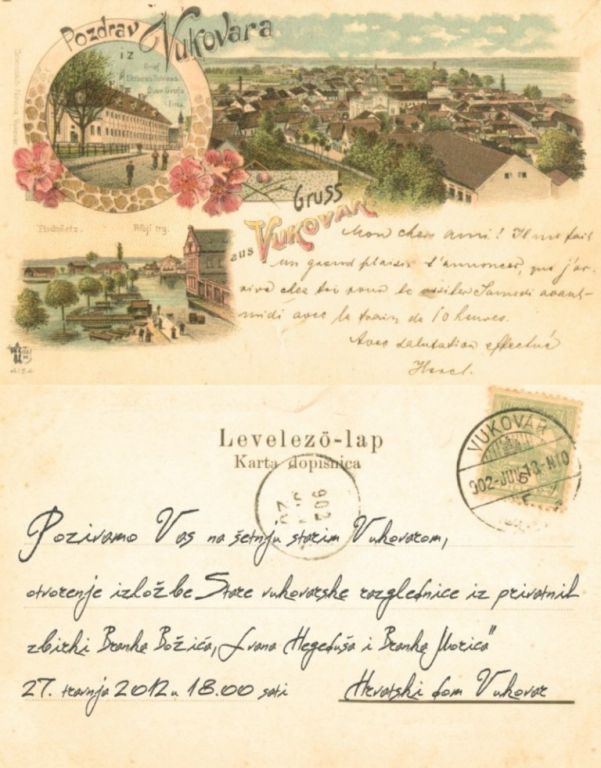 Pozdrav
iz
Vukovara
Gruss
aus Vukovar
Mon cher ami! Il me fait
un grand plaisir t'annoncer, que j'ar-
rive chez toi pour te visiter Samedi avant-
midi avec le train de 10 heures.
Avec salutation
Levelező-lap
Karta dopisnica
VUKOVAR
902
902
Pozivamo Vas na šetnju starim Vukovarom,
otvorenje izložbe Stare vukovarske razglednice iz privatnih
zbirki Branka Božića, Ivana Hegeduša i Branka Morića"
27. travnja 2012 u 18.00 sati
Hrvatski dom Vukovar